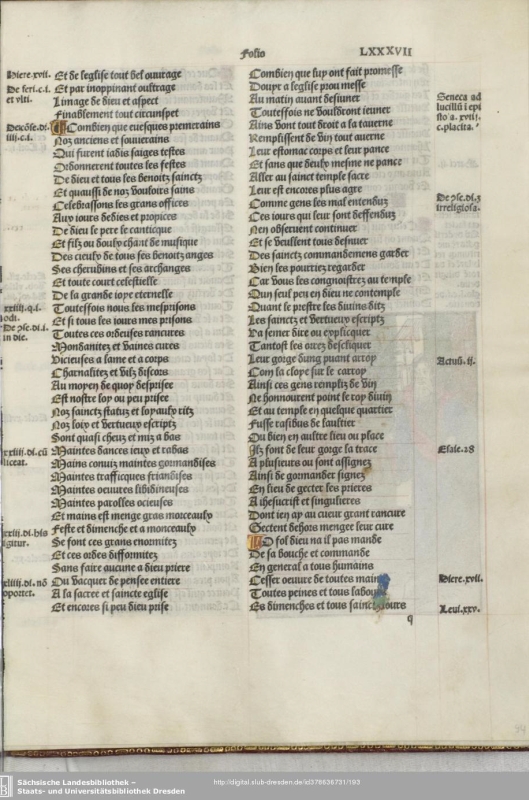 Folio LXXXVII
Hiere.xvii.
De feri.c.i.
et vlti.
De cōse.di.
iiii.c.i.
xxiiii.q.i.
odi.
De pse.di.i.
in die.
xxiiii.di.cū
liceat.
xxiii.di.his
igitur.
xliii.di.nō
oportet.
Et de leglise tout bel ouurage
Et par inoppinant oultrage
Limage de dieu et aspect
Finablement tout circunspet
Combien que euesques premerains
Noz anciens et souuerains
Qui furent iadis saiges testes
Ordonnerent toutes les festes
De dieu et tous les benoitz sainctz
Et quaussi de noz vouloirs sains
Celebrassons les grans offices
Aux iours dedies et propices
De dieu le pere le cantique
Et filz ou doulx chant de musique
Des cieulx de tous ses benoitz anges
Ses cherubins et ses archanges
Et toute court celestielle
De la grande ioye eternelle
Touteffois nous les mesprisons
Et si tous les iours mes prisons
Toutes ces ordeuses rancures
Mondanitez et vaines cures
Vicieuses a lame et a corps
Charnalitez et vilz discors
Au moyen de quoy desprisee
Est nostre loy ou peu prisee
Noz sainctz statuz et loyaulx ritz
Noz loix et vertueux escriptz
Sont quasi cheuz et mis a bas
Maintes dances ieux et rabas
Mains conuiz maintes gormandises
Maintes trafficques friandises
Maintes oeuures libidineuses
Maintes parolles ocieuses
Et mains est menge gras morceaulx
Feste et dimenche et a monceaulx
Se font ces grans enormitez
Et ces ordes difformitez
Sans faire aucune a dieu priere
Ou vacquer de pensee entiere
A la sacree et saincte eglise
Et encores si peu dieu prise
Combien que luy ont fait promesse
Douyr a leglise prou messe
Au matin auant desiuner
Touteffois ne vouldront ieuner
Ains vont tout droit a la tauerne
Remplissent de vin tout auerne
Leur estomac corps et leur pance
Et sans que deulx mesme ne pance
Aller au sainct temple sacre
Leur est encores plus agre
Comme gens les mal entenduz
Ces iours qui leur sont deffenduz
Nen obseruent continuer
Et se veullent tous desnuer
Des sainctz commandemens garder
Bien les pourriez regarder
Car vous les congnoistrez au temple
Qun seul pen en dieu ne contemple
Quant le prestre les diuins ditz
Les sainctz et vertueux escriptz
Va semer dire ou explicquer
Tantost les orrez desclicquer
Leur gorge dung puant arrop
Com la cloye sur le carrop
Ainsi ces gens rempliz de vin
Ne honnourent point le roy diuin
Et au temple en quelque quartier
Fusse rasibus de saultier
Ou bien en aultre lieu ou place
Ilz font de leur gorge la trace
A plusieurs ou sont assignez
Ainsi de gormander signez
En lieu de gecter les prieres
A ihesucrist et singulieres
Dont ien ay au cueur grant rancure
Gectent dehors menger leur cure
O fol dieu na il pas mande
De sa bouche et commande
En general a tous humains
Cesser oeuure de toutes mains
Toutes peines et tous labours
Es dimenches et tous sainctz iours
q
Seneca ad
lucillū i epi
sto a. xviij.
c.placita.
De pse.di.3
irreligiosa.
Actuū.ii.
Esaie.28
Hiere.xvii.
Leui.xxv.
Sächsische Landesbibliothek –
Staats- und Universitätsbibliothek Dresden
http://digital.slub-dresden.de/id378636731/193